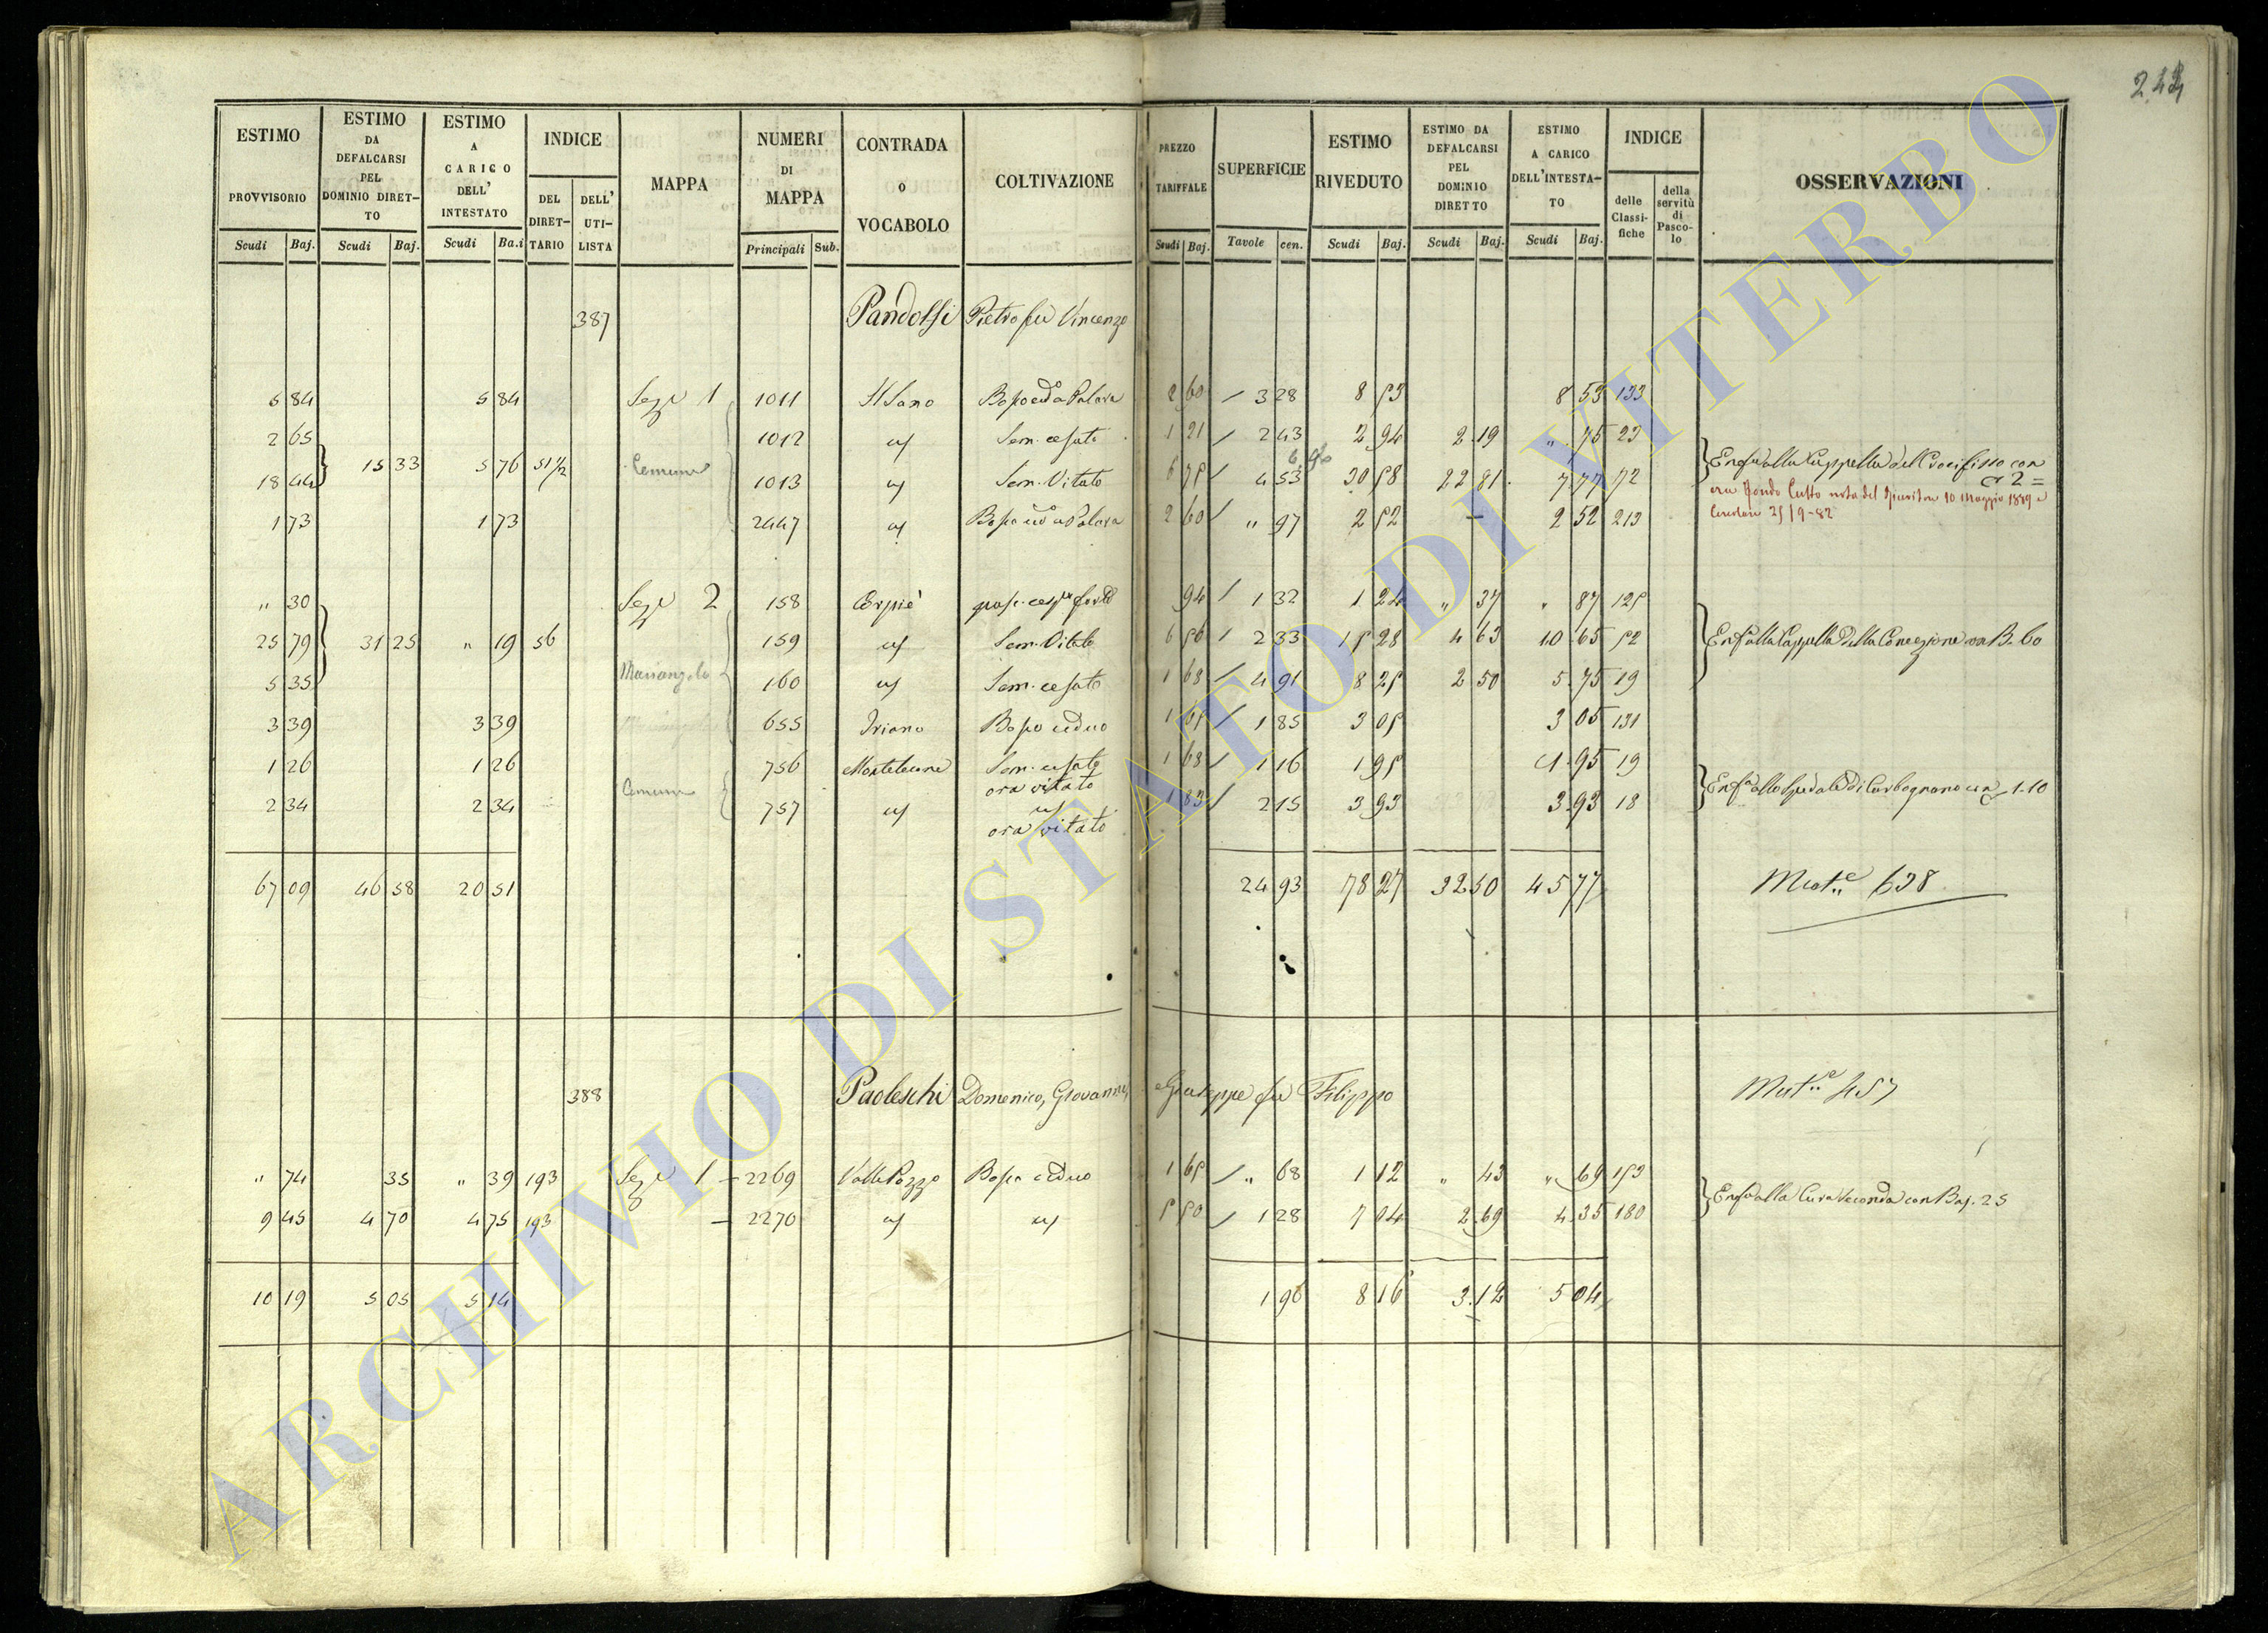 244
ESTIMO PROVVISORIO Scudi Baj.
ESTIMO DA DEFALCARSI PEL DOMINIO DIRET-TO Scudi Baj.
ESTIMO A CARICO DELL' INTESTATO Scudi Ba.i
INDICE DEL DIRET-TARIO DELL' UTI-LISTA
MAPPA
NUMERI DI MAPPA Principali Sub.
CONTRADA O VOCABOLO
COLTIVAZIONE
PREZZO TARIFFALE Scudi Baj.
SUPERFICIE Tavole cen.
ESTIMO RIVEDUTO Scudi Baj.
ESTIMO DA DEFALCARSI PEL DOMINIO DIRETTO Scudi Baj.
ESTIMO A CARICO DELL'INTESTA-TO Scudi Baj.
INDICE delle Classi-fiche della servitù di Pasco-lo
OSSERVAZIONI
387 Pandolfi Pietro fu Vincenzo
5 84 5 84 Seze 1 1011 Il Sano 2 60 / 3 28 8 53 8 53 133
2 65 1012 Sem. cesato 1 21 / 2 43 2 94 2 19 " 75 23
15 33 5 76 51 1/2 Comune
18 44 1013 Sem. Vitato 6 75 4 53 30 58 22 81 7 77 72
Enfa alla Cappella del Crocifisso con
2 =
ora Fondo Culto nota del Ricevitore 10 Maggio 1889 e
Circolare 25/9-82
1 73 1 73 2447 2 60 / " 97 2 52 - 2 52 213
" 30 Seze 2 158 94 / 1 32 1 24 " 37 " 87 125
25 79 31 25 " 19 56 159 Sem. Vitato 6 56 / 2 33 15 28 4 63 10 65 52 Enfa alla Cappella della Concezione con B. 60
5 35 Mariangelo 160 Sem. cesato 1 68 / 4 91 8 25 2 50 5 75 19
3 39 3 39 655 Triano Bosco ceduo 1 65 / 1 85 3 05 3 05 131
1 26 1 26 756 Monteleone Sem. cesato 1 68 / 1 16 1 95 1 95 19
ora vitato
Comune Enfa allo Spedale di Carbognano con 1.10
2 34 2 34 757 1 83 / 2 15 3 93 3 93 18
ora vitato
67 09 46 58 20 51 24 93 78 27 32 50 45 77 Mut.e 638
388 Paoleschi Domenico, Giovanni, Giuseppe fu Filippo Mut.e 457
" 74 35 " 39 193 Seze 1 - 2269 Valle Pozzo Bosco ceduo 1 65 / " 68 1 12 " 43 " 69 153
Enfa alla Cura seconda con Baj. 25
9 45 4 70 4 75 193 - 2270 5 50 / 1 28 7 04 2 69 4 35 180
10 19 5 05 5 14 1 96 8 16 3 12 5 04
ARCHIVIO DI STATO DI VITERBO